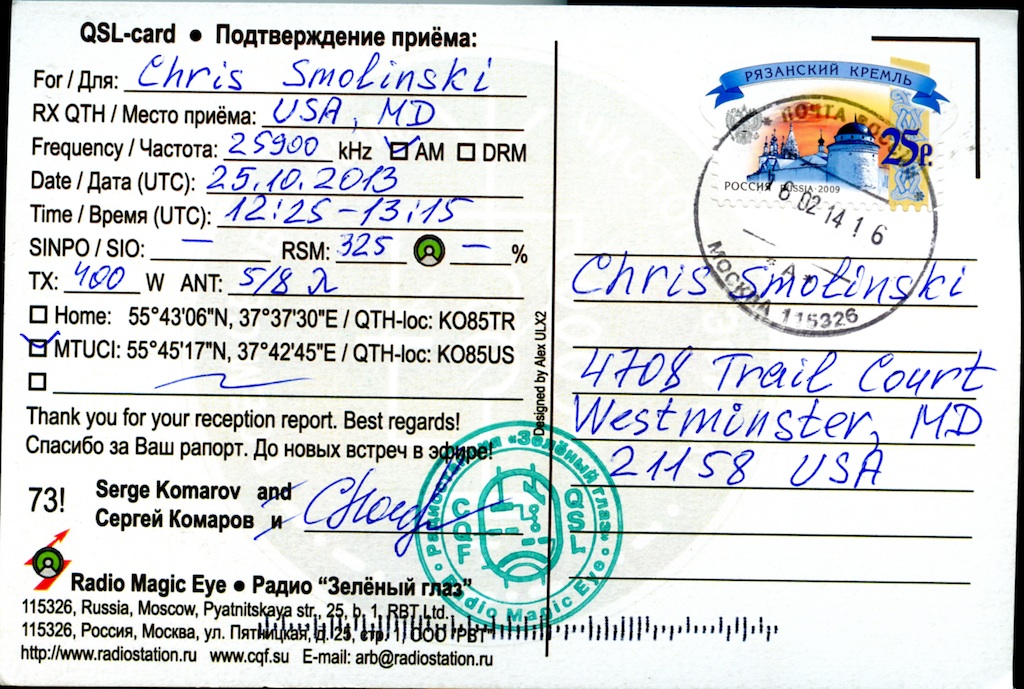 QSL-card ● Подтверждение приёма:
For / Для: Chris Smolinski
RX QTH / Место приёма: USA, MD
Frequency / Частота: 25900 kHz ☑ AM ☐ DRM
Date / Дата (UTC): 25.10.2013
Time / Время (UTC): 12:25-13:15
SINPO / SIO: — RSM: 325 — %
TX: 400 W ANT: 5/8 λ
☐ Home: 55°43'06"N, 37°37'30"E / QTH-loc: KO85TR
☑ MTUCI: 55°45'17"N, 37°42'45"E / QTH-loc: KO85US
☐
Thank you for your reception report. Best regards!
Спасибо за Ваш рапорт. До новых встреч в эфире!
73! Serge Komarov and
Сергей Комаров и
Radio Magic Eye ● Радио “Зелёный глаз”
115326, Russia, Moscow, Pyatnitskaya str., 25, b. 1, RBT Ltd.
115326, Россия, Москва, ул. Пятницкая, д. 25, стр. 1, ООО "РВТ"
http://www.radiostation.ru www.cqf.su E-mail: arb@radiostation.ru
Designed by Alex ULX2
Радиостанция «Зелёный глаз»
CQF QSL
Radio Magic Eye
РЯЗАНСКИЙ КРЕМЛЬ
25р.
РОССИЯ RUSSIA·2009
ПОЧТА
02 14 1 6
* А *
МОСКВА 115326
Chris Smolinski
4708 Trail Court
Westminster, MD
21158 USA